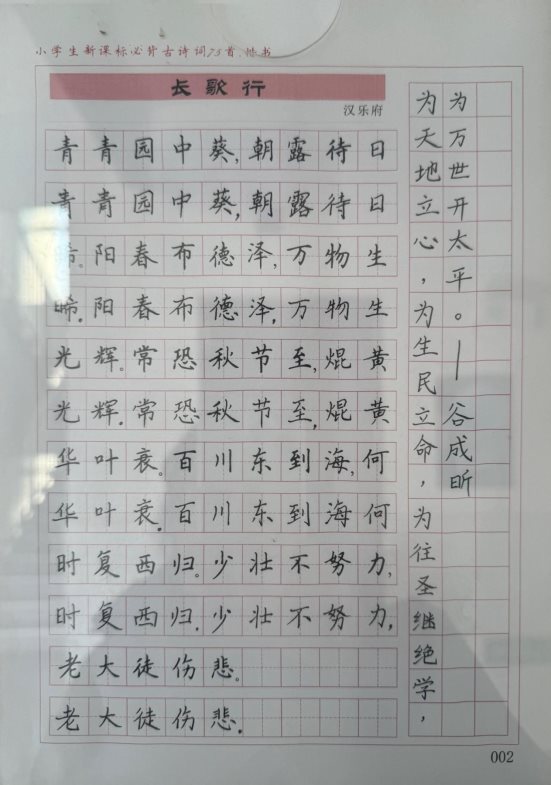 小学生新课标必背古诗词75首.楷书
长歌行
汉乐府
青青园中葵,朝露待日
青青园中葵,朝露待日
晞。阳春布德泽,万物生
晞.阳春布德泽,万物生
光辉。常恐秋节至,焜黄
光辉.常恐秋节至,焜黄
华叶衰。百川东到海,何
华叶衰.百川东到海何
时复西归。少壮不努力,
时复西归.少壮不努力,
老大徒伤悲。
老大徒伤悲.
为天地立心,为生民立命,为往圣继绝学,
为万世开太平。—谷成昕
002